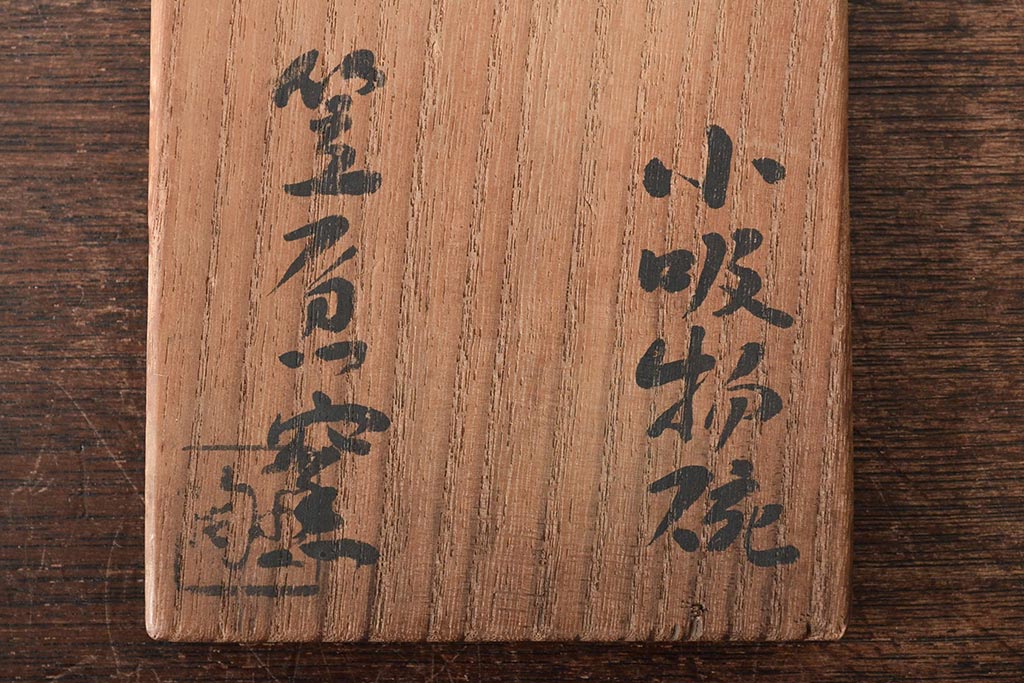 小吸物碗
笠原窯